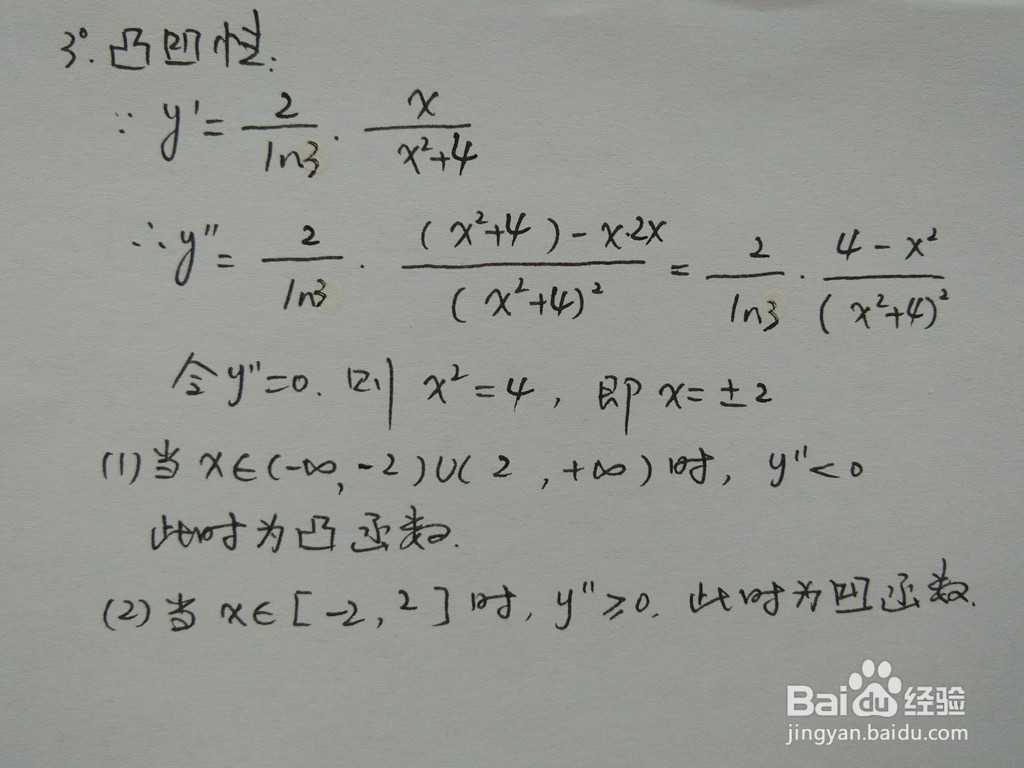 3°.凸凹性:
∵ y' = 2/ln3 · x/(x²+4)
∴ y'' = 2/ln3 · ((x²+4)-x·2x)/(x²+4)² = 2/ln3 · (4-x²)/(x²+4)²
令y''=0. 则 x²=4, 即 x=±2
(1)当 x∈(-∞,-2)∪(2,+∞)时, y''<0
此时为凸函数.
(2)当 x∈[-2,2]时, y''≥0. 此时为凹函数.
Baidu经验
jingyan.baidu.com